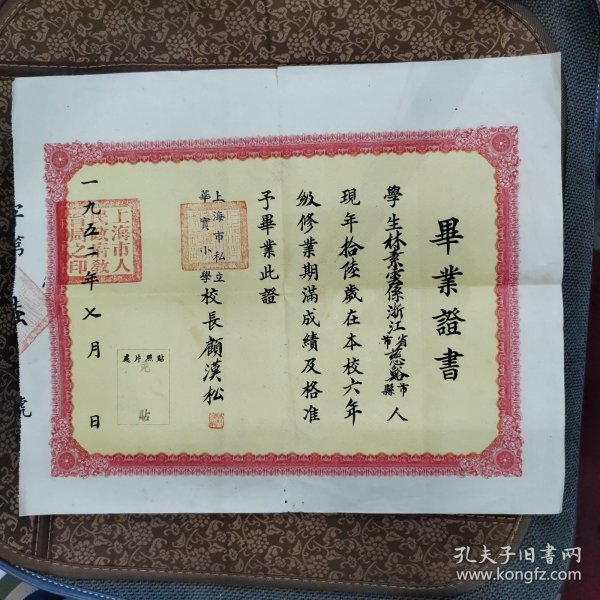 畢業證書
學生林素雲係浙江省慈谿市縣人
現年拾陸歲在本校六年
級修業期滿成績及格准
予畢業此證
上海市私立
華實小學
校長顧漢松
一九五二年七月 日
上海市人民政府教育局之印
貼照片處
免貼
字第
號
孔夫子旧书网
www.kongfz.com